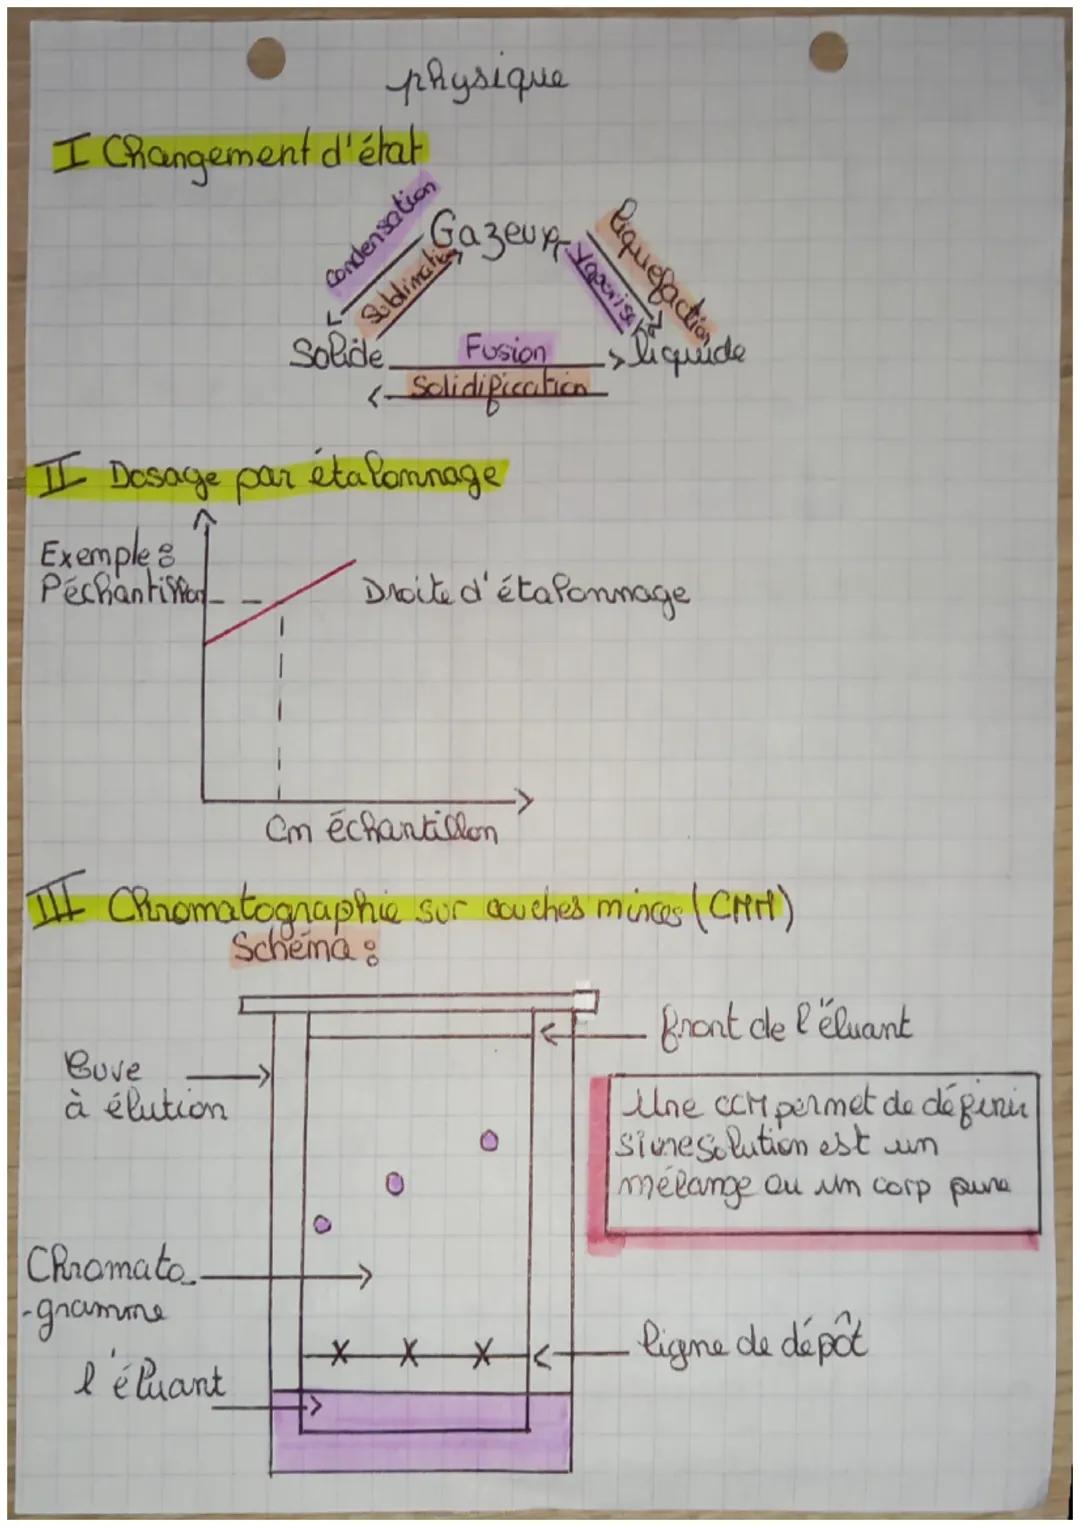 physique
I Changement d'état
Condensation
Gazeux
Liquefaction
Sublimation
Vaporise
Solide
Fusion
liquide
Solidification
II Dosage par étalonnage
Exemple :
Péchantillon
Droite d'étalonnage
Cm échantillon
III Chromatographie sur couches minces (CMM)
Schéma :
front de l'éluant
Cuve
à élution
Une CCM permet de définir
si une solution est un
mélange ou un corp pure
Chromato-
-gramme
ligne de dépôt
l'éluant